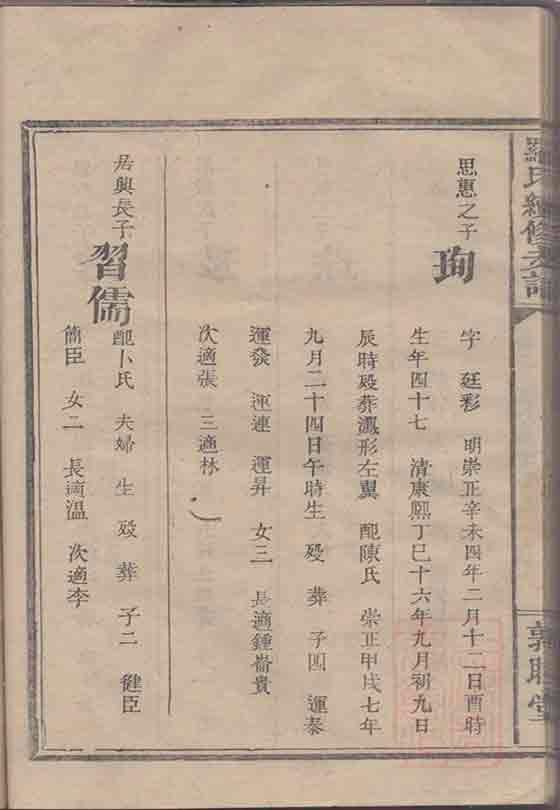 羅氏續修支譜
敦睦堂
思惠之子
珣
字 廷彩 明崇正辛未四年二月十二日酉時
生年四十七 清康熙丁巳十六年九月初九日
辰時歿葬鳳形左翼 配陳氏 崇正甲戌七年
九月二十四日午時生 歿 葬 子四 運泰
運發 運連 運昇 女三 長適鍾崙貴
次適張 三適林
居興長子
習儒
配卜氏 夫婦 生 歿 葬 子二 健臣
簡臣 女二 長適溫 次適李